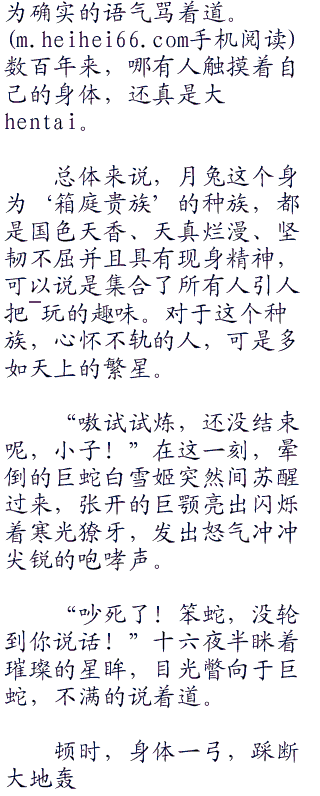 为确实的语气骂着道。
(m.heihei66.com手机阅读)
数百年来，哪有人触摸着自
己的身体，还真是大
hentai。
总体来说，月兔这个身
为‘箱庭贵族’的种族，都
是国色天香、天真烂漫、坚
韧不屈并且具有现身精神，
可以说是集合了所有人引人
把¯玩的趣味。对于这个种
族，心怀不轨的人，可是多
如天上的繁星。
“嗷试试炼，还没结束
呢，小子！”在这一刻，晕
倒的巨蛇白雪姬突然间苏醒
过来，张开的巨颚亮出闪烁
着寒光獠牙，发出怒气冲冲
尖锐的咆哮声。
“吵死了！笨蛇，没轮
到你说话！”十六夜半眯着
璀璨的星眸，目光瞥向于巨
蛇，不满的说着道。
顿时，身体一弓，踩断
大地轰